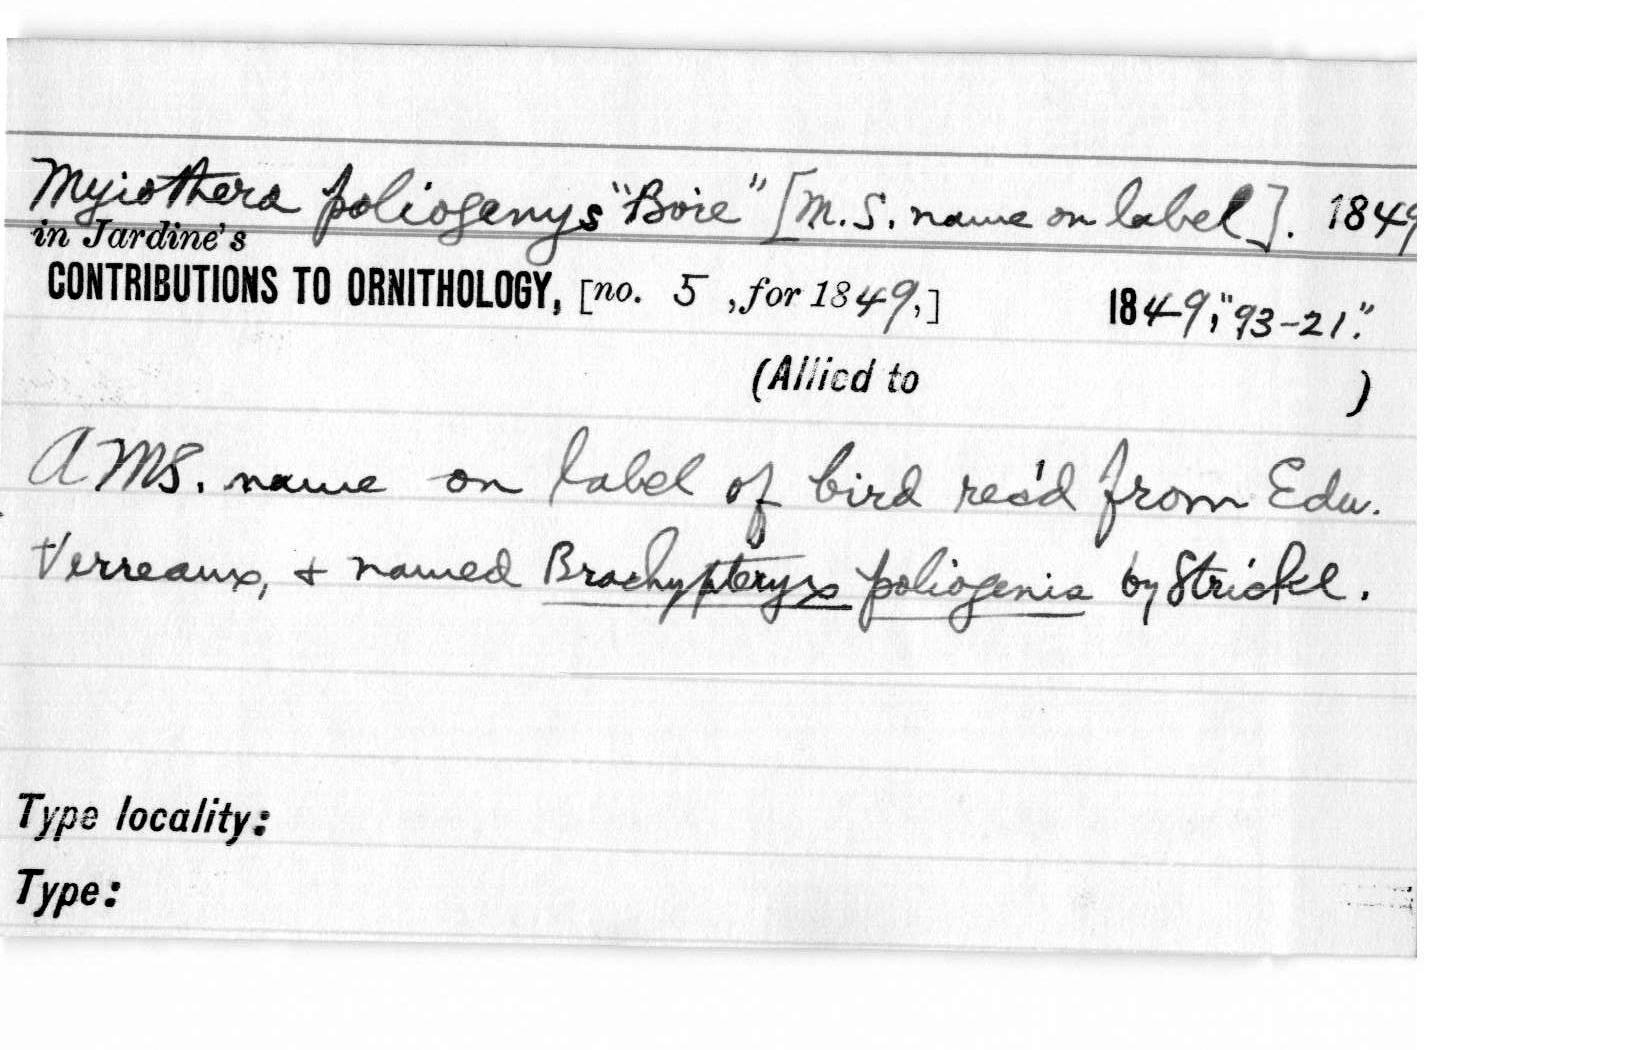 Myiothera poliogenys "Boie" [M.S. name on label]. 1849
in Jardine's
CONTRIBUTIONS TO ORNITHOLOGY, [no. 5 , for 1849,] 1849, "93-21".
(Allied to )
A MS. name on label of bird rec'd from Edw.
Verreaux, + named Brachypteryx poliogenis by Strickl.
Type locality:
Type: